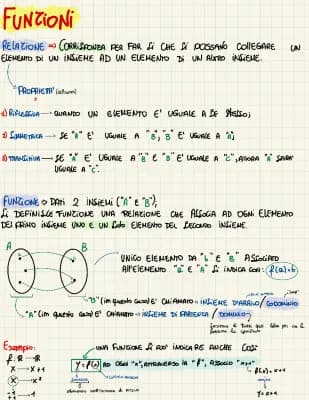 FUNZIONI
RELAZIONE => CORRISPONDE PER FAR SÌ CHE SI POSSANO COLLEGARE UN
ELEMENTO DI UN INSIEME AD UN ELEMENTO DI UN ALTRO INSIEME.
PROPRIETÀ
1) RIFLESSIVA → QUANDO UN ELEMENTO È UGUALE A SE STESSO;
2) SIMMETRICA → SE "A" È UGUALE A "B", "B" È UGUALE A "A";
3) TRANSITIVA → SE "A" È UGUALE A "B" E "B" È UGUALE A "C", ALLORA "A" SARÀ
UGUALE A "C".
FUNZIONE DATI 2 INSIEMI ("A" E "B"),
SI DEFINISCE FUNZIONE UNA RELAZIONE CHE ASSOCIA AD OGNI ELEMENTO
DEL PRIMO INSIEME UNO E UN SOLO ELEMENTO DEL SECONDO INSIEME.
A B
UNICO ELEMENTO DA "b" E "B" ASSOCIATO
ALL'ELEMENTO "a" E "A" SI INDICA CON: f(a)=b
"B" (in questo caso) È CHIAMATO → INSIEME D'ARRIVO / CODOMINIO
"A" (in questo caso) È CHIAMATO → INSIEME DI PARTENZA / DOMINIO
Esempio:
UNA FUNZIONE SI PUÒ INDICARE ANCHE COSÌ
f: R → R
X → X+1
y = f(x) AD OGNI "x", ATTRAVERSO LA "f", ASSOCIO "x+1"
f(x) = x+1
y = x+1